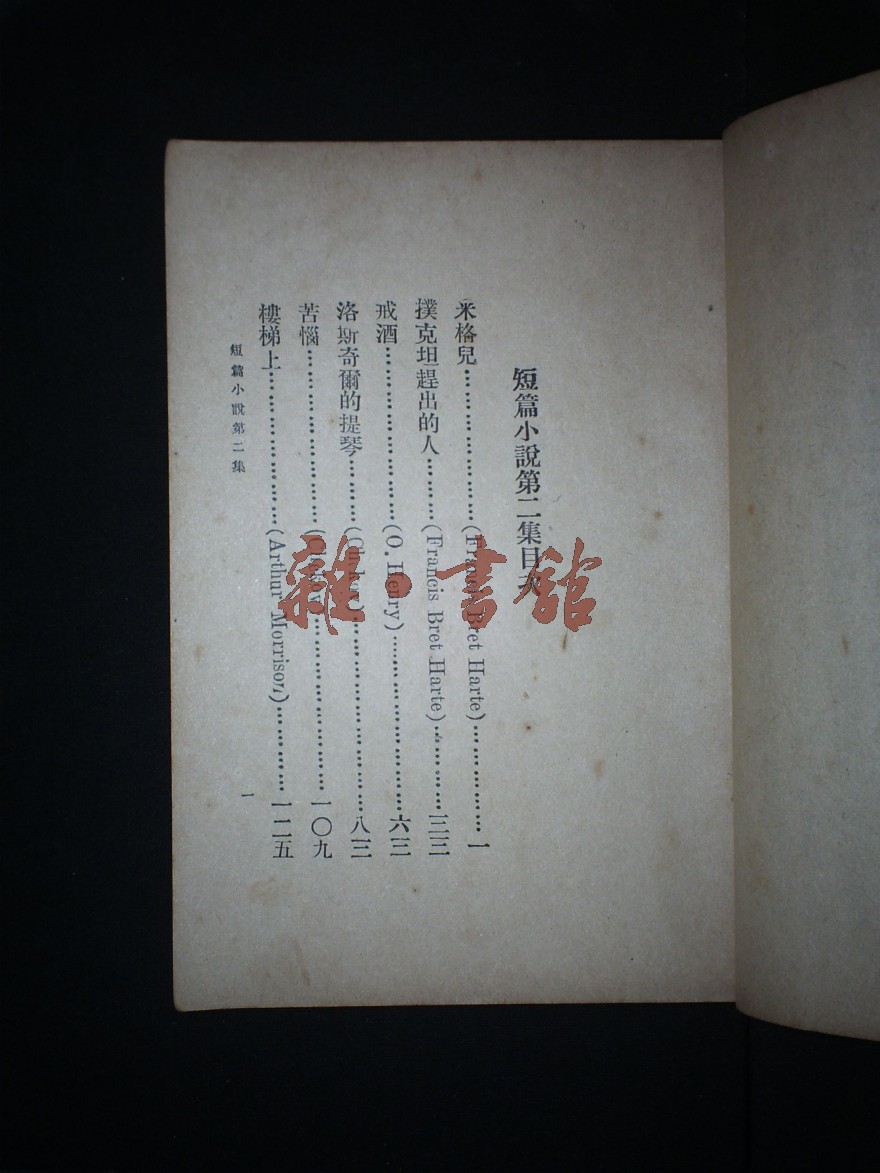 短篇小說第二集目次
米格兒……………………(Francis Bret Harte)………………一
撲克坦趕出的人………(Francis Bret Harte)…………三三
戒酒……………………(O. Henry)……………………六三
洛斯奇爾的提琴………(Chekov)……………………八三
苦惱……………………(Chekov)……………………一〇九
樓梯上…………………(Arthur Morrison)…………一二五
短篇小說第二集
一
雜·書館